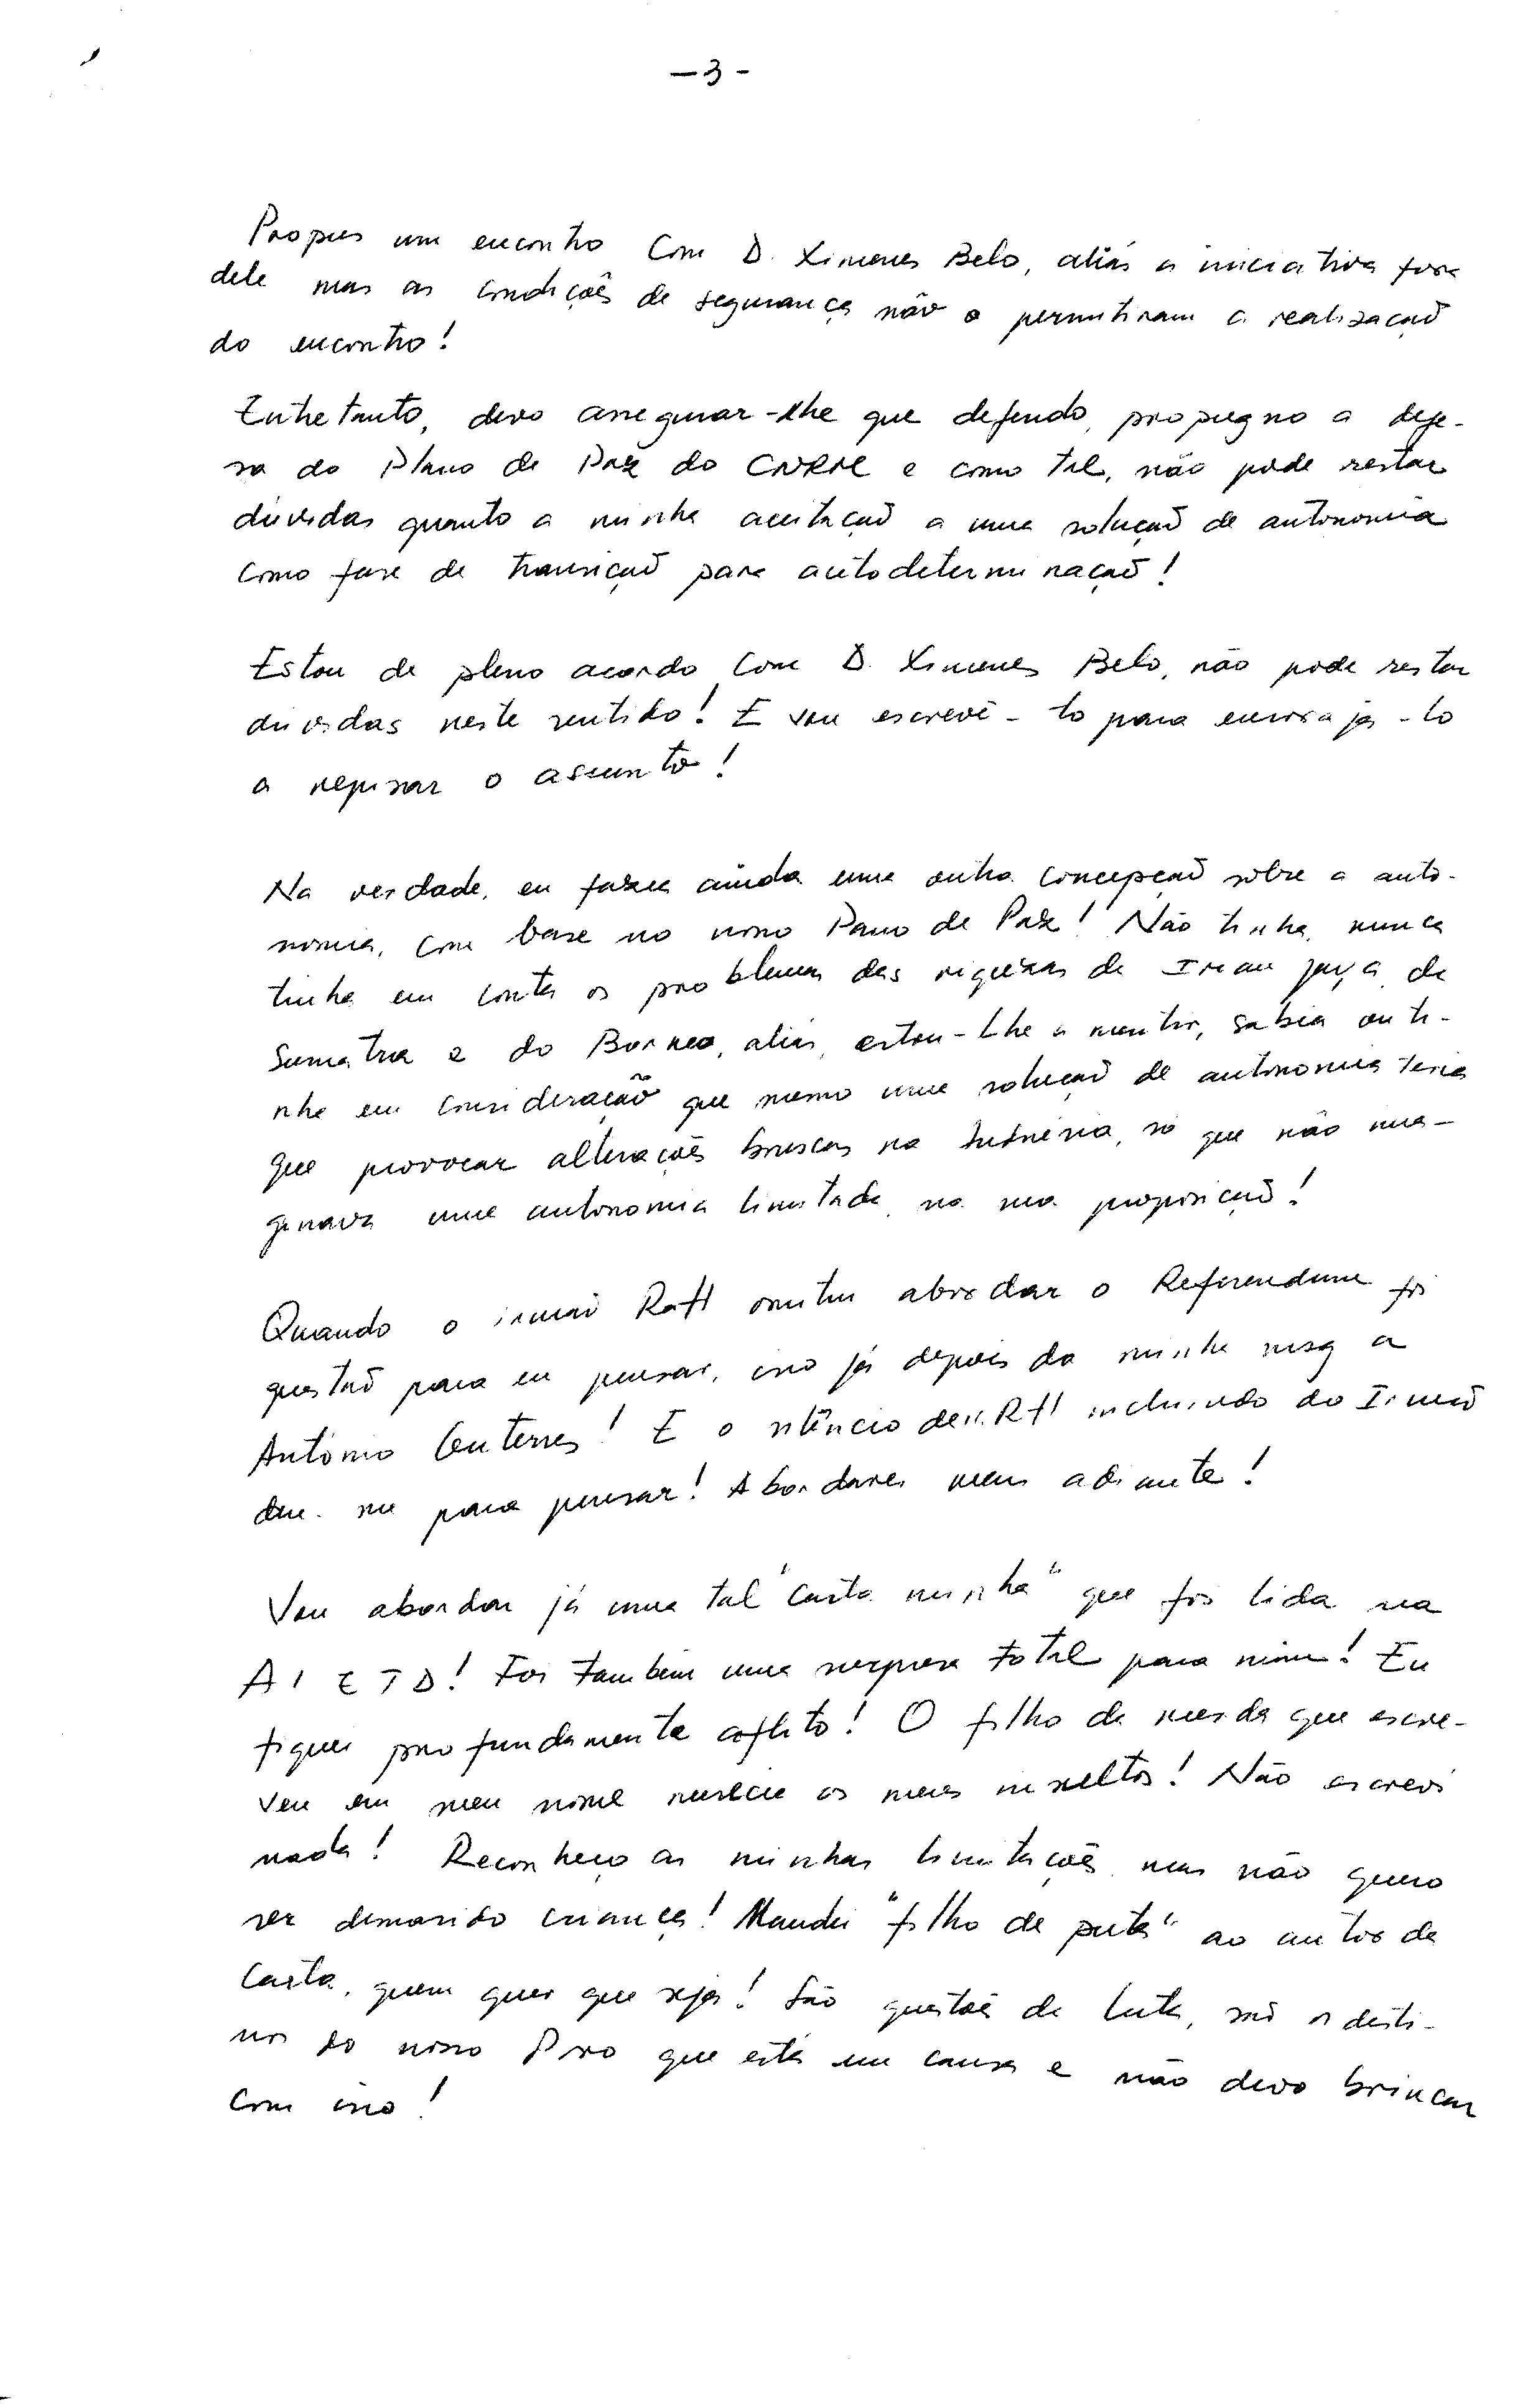 - 3 -
Propus um encontro com D. Ximenes Belo, aliás a iniciativa fora
dele mas as condições de segurança não o permitiram a realização
do encontro!
Entretanto, devo assegurar-lhe que defendo, propugno a defe-
sa do Plano de Paz do CNRM e como tal, não pode restar
dúvidas quanto a minha aceitação a uma solução de autonomia
como fase de transição para autodeterminação!
Estou de pleno acordo com D. Ximenes Belo, não pode restar
dúvidas neste sentido! E vou escrevê-lo para encoraja-lo
a repisar o assunto!
Na verdade, eu fazia ainda uma outra concepção sobre a auto-
nomia, com base no nosso Pano de Paz! Não tinha, nunca
tinha em conta os problemas das riquezas de Irian Jaya, de
Sumatra e do Borneo, aliás, estou-lhe a mentir, sabia ou ti-
nha em consideração que mesmo uma solução de autonomia teria
que provocar alterações bruscas na Indonésia, só que não ima-
ginava uma autonomia limitada, na sua proposição!
Quando o irmão RaH omitiu abordar o Referendum foi
questão para eu pensar, isso já depois da minha msg a
António Guterres! E o silêncio de RH incluindo do Irmão
deu-me para pensar! Abordarei mais adiante!
Vou abordar já uma tal "carta minha" que foi lida na
AIETD! Foi também uma surpresa total para mim! Eu
fiquei profundamente aflito! O filho da merda que escre-
veu em meu nome merecia os meus insultos! Não escrevi
nada! Reconheço as minhas limitações mas não quero
ser demasido criança! Mandei "filho de puta" ao autor da
carta, quem quer que seja! São questões de luta, são os desti-
nos do nosso Povo que está em causa e não devo brincar
com isso!